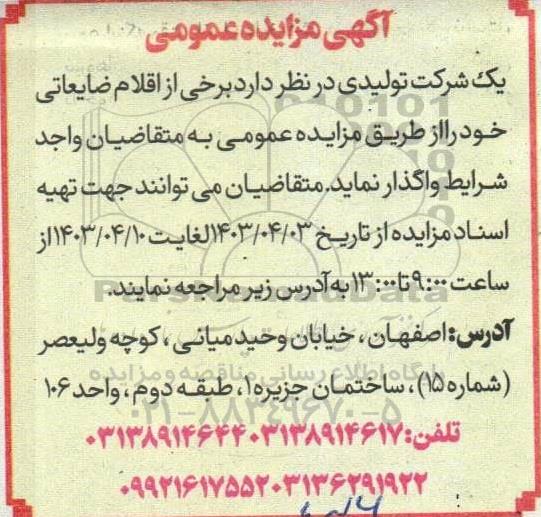 آگهی مزایده عمومی
یک شرکت تولیدی در نظر دارد برخی از اقلام ضایعاتی
خود را از طریق مزایده عمومی به متقاضیان واجد
شرایط واگذار نماید. متقاضیان می توانند جهت تهیه
اسناد مزایده از تاریخ ۱۴۰۳/۰۴/۰۳ لغایت ۱۴۰۳/۰۴/۱۰ از
ساعت ۹:۰۰ تا ۱۳:۰۰ به آدرس زیر مراجعه نمایند.
آدرس: اصفهان، خیابان وحید میانی، کوچه ولیعصر
(شماره ۱۵)، ساختمان جزیره ۱، طبقه دوم، واحد ۱۰۶
پایگاه اطلاع رسانی مناقصه و مزایده
۰۲۱-۸۸۳۴۹۶۷۰-۵
تلفن: ۰۳۱۳۸۹۱۴۶۱۷-۰۳۱۳۸۹۱۴۶۴۴
۰۳۱۳۶۲۹۱۹۲۲-۰۹۹۲۱۶۱۷۵۵۲